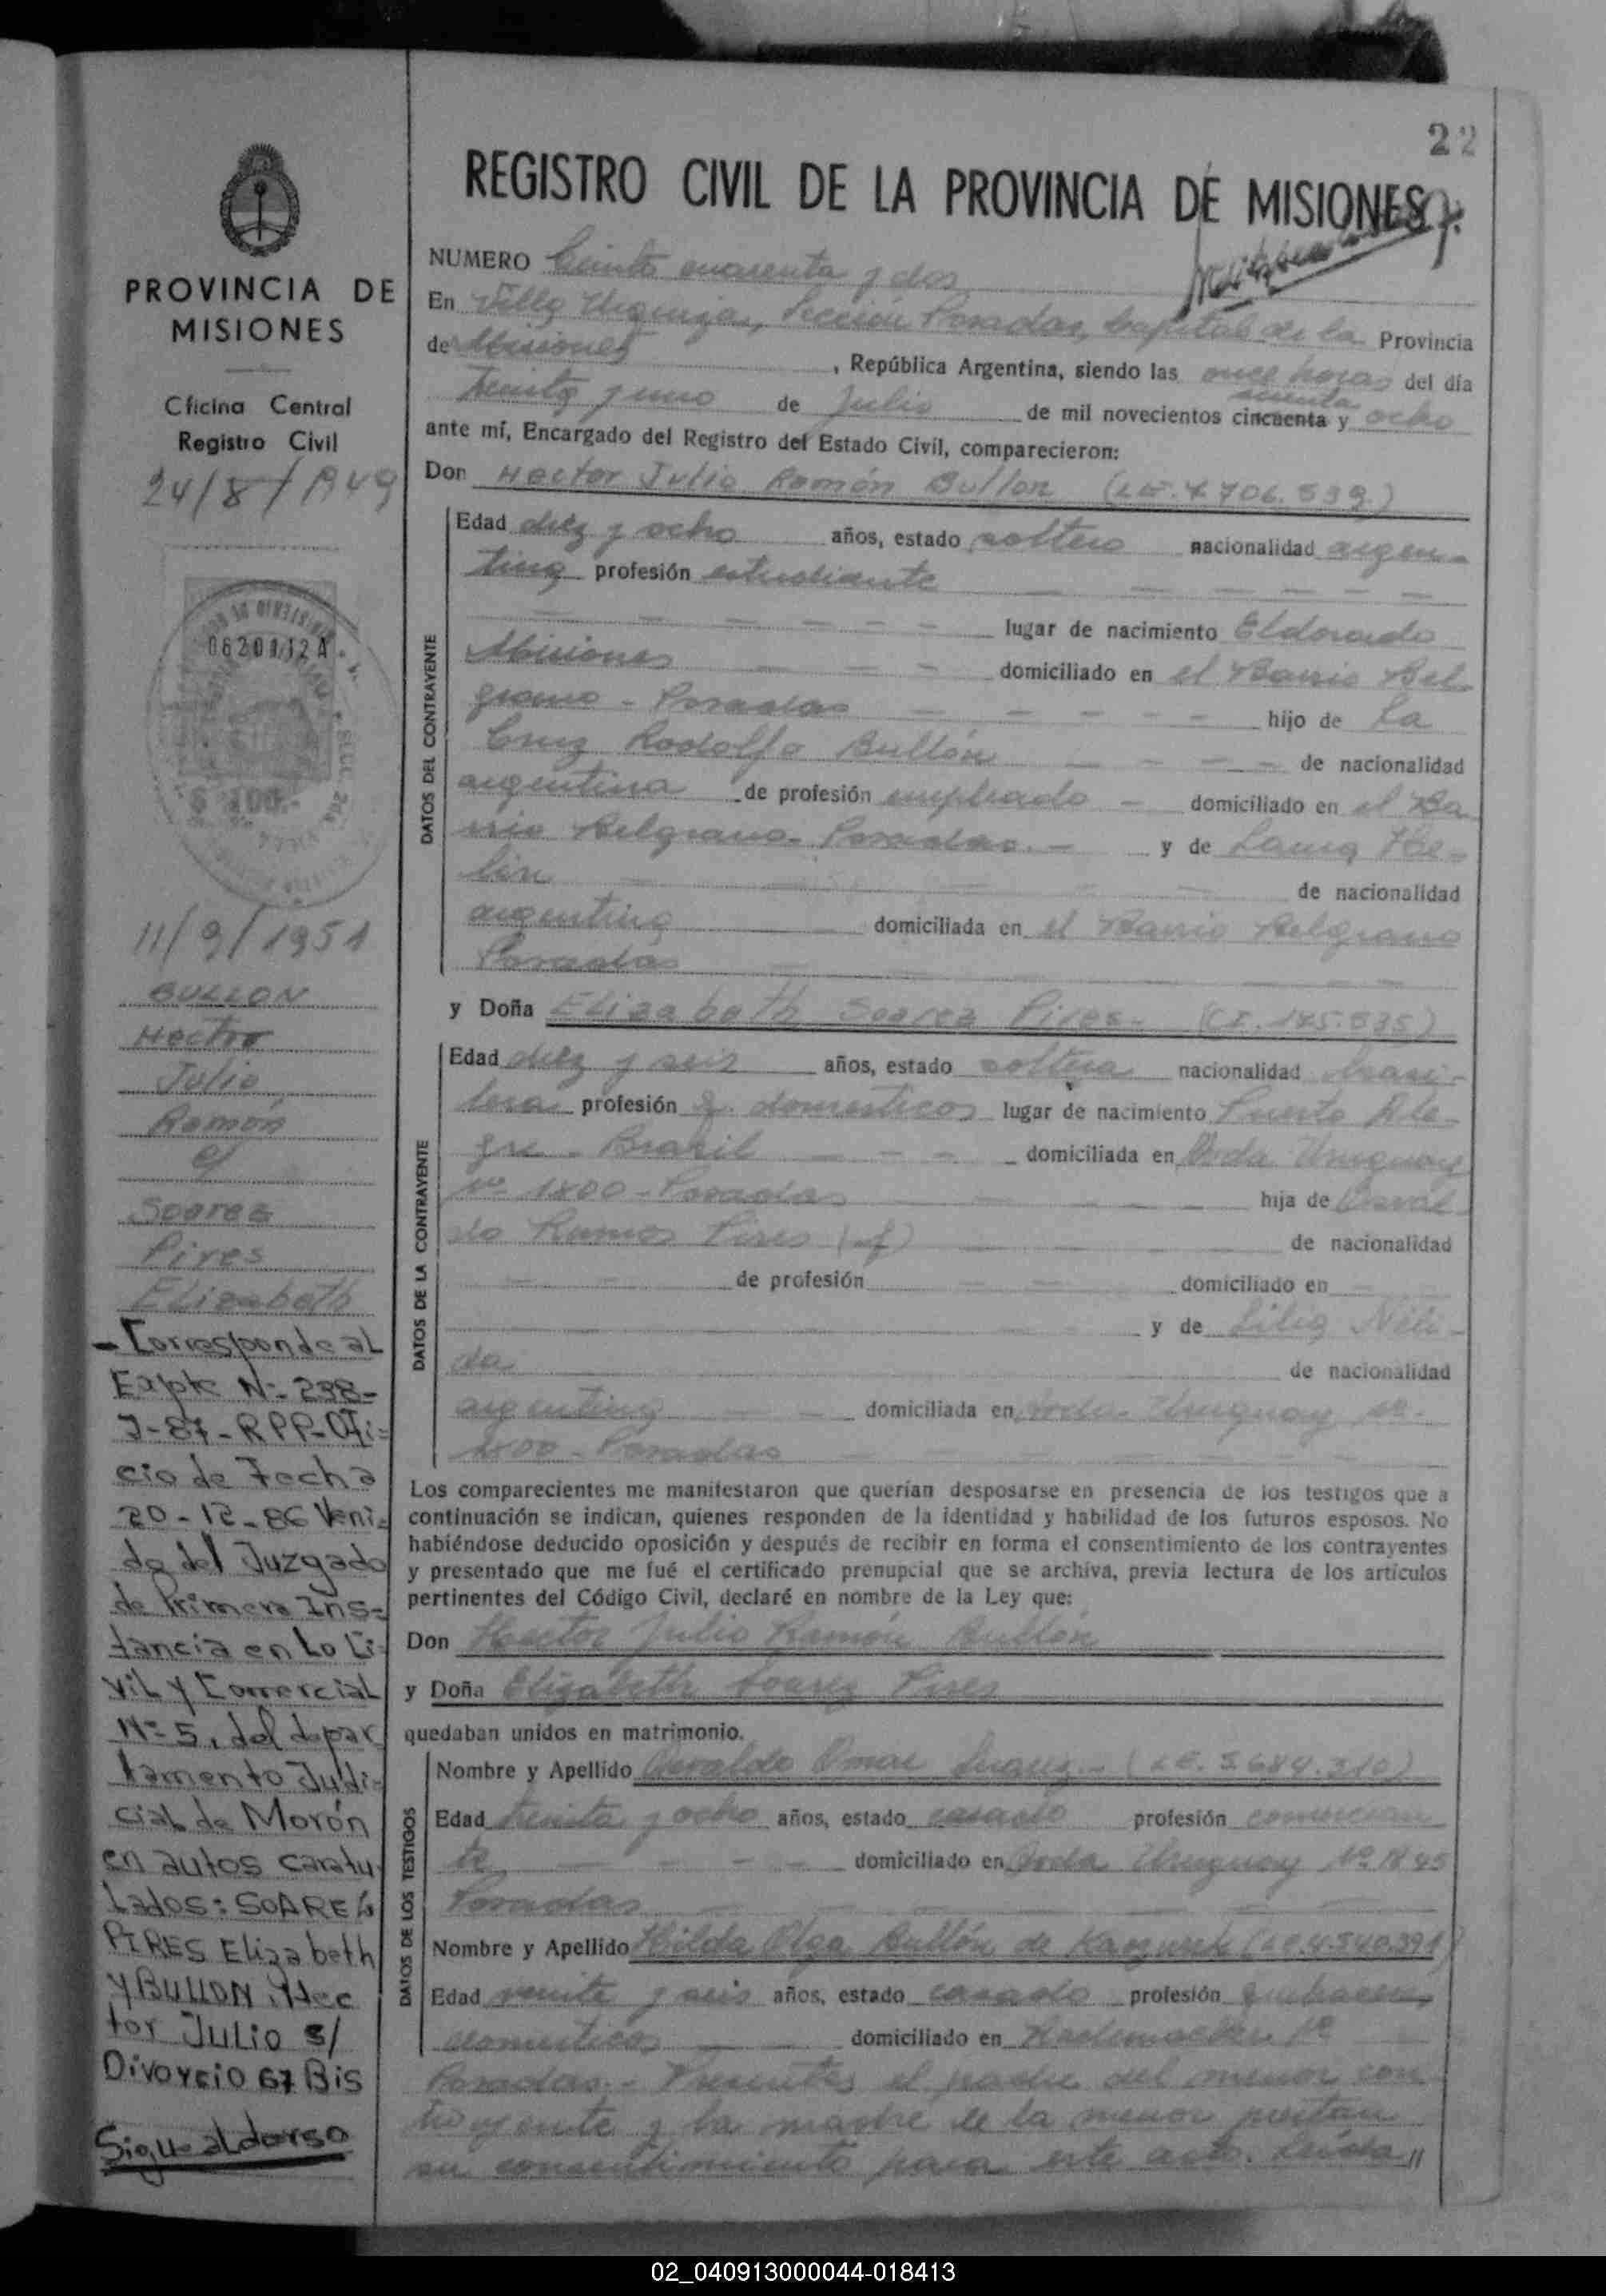 22
REGISTRO CIVIL DE LA PROVINCIA DE MISIONES
PROVINCIA DE
MISIONES
Oficina Central
Registro Civil
24/8/1949
06200112A
$ 100.-
11/9/1951
BULLON
Hector
Julio
Ramón
c/
Soares
Pires
Elizabeth
- Corresponde al
Expte N:- 298-
J-87-RPP-Ofi=
cio de Fecha
20-12-86 Veni=
do del Juzgado
de Primera Ins=
tancia en Lo Ci-
vil y Comercial
N:- 5, del depar
tamento Judi-
cial de Morón
en autos caratu
lados: SOARES
PIRES Elizabeth
y BULLON, Hec
tor Julio s/
Divorcio 67 Bis
Sigue al dorso
NUMERO Ciento cuarenta y dos
En Villa Urquiza, Sección Posadas, Capital de la Provincia
de Misiones , República Argentina, siendo las once horas del día
treinta y uno de Julio de mil novecientos cincuenta y ocho
ante mí, Encargado del Registro del Estado Civil, comparecieron:
Don Hector Julio Ramón Bullon (L.E. 7.706.539.)
DATOS DEL CONTRAYENTE
Edad diez y ocho años, estado soltero nacionalidad argen-
tina profesión estudiante
lugar de nacimiento Eldorado
Misiones domiciliado en el Barrio Bel
grano - Posadas hijo de La
Cruz Rodolfo Bullón de nacionalidad
argentina de profesión empleado - domiciliado en el Ba
rrio Belgrano - Posadas. - y de Laura
de nacionalidad
argentina domiciliada en el Barrio Belgrano
Posadas
y Doña Elizabeth Soarez Pires- (C.I. 175.535)
DATOS DE LA CONTRAYENTE
Edad diez y seis años, estado soltera nacionalidad brasi-
lera profesión q. domesticos lugar de nacimiento Puerto Ale-
gre - Brasil domiciliada en Avda Uruguay
nº 1800 - Posadas hija de Osval
do Ramos Pires (f) de nacionalidad
de profesión domiciliado en
y de Lilia Neli-
da de nacionalidad
argentina domiciliada en Avda. Uruguay nº.
1800 - Posadas
Los comparecientes me manifestaron que querían desposarse en presencia de los testigos que a
continuación se indican, quienes responden de la identidad y habilidad de los futuros esposos. No
habiéndose deducido oposición y después de recibir en forma el consentimiento de los contrayentes
y presentado que me fué el certificado prenupcial que se archiva, previa lectura de los artículos
pertinentes del Código Civil, declaré en nombre de la Ley que:
Don Hector Julio Ramón Bullón
y Doña Elizabeth Soarez Pires
quedaban unidos en matrimonio.
DATOS DE LOS TESTIGOS
Nombre y Apellido Osvaldo Omar Suarez - (L.E. 5.684.310)
Edad treinta y ocho años, estado casado profesión comercian
te domiciliado en Avda Uruguay Nº 1845
Posadas
Nombre y Apellido Hilda Olga Bullón de (L.C. 4.540.391)
Edad veinte y seis años, estado casada profesión quehaceres
domesticos domiciliado en Nº
Posadas. - Presentes el padre del menor con
trayente y la madre de la menor prestan
su consentimiento para este acto. Leída //
02_040913000044-018413